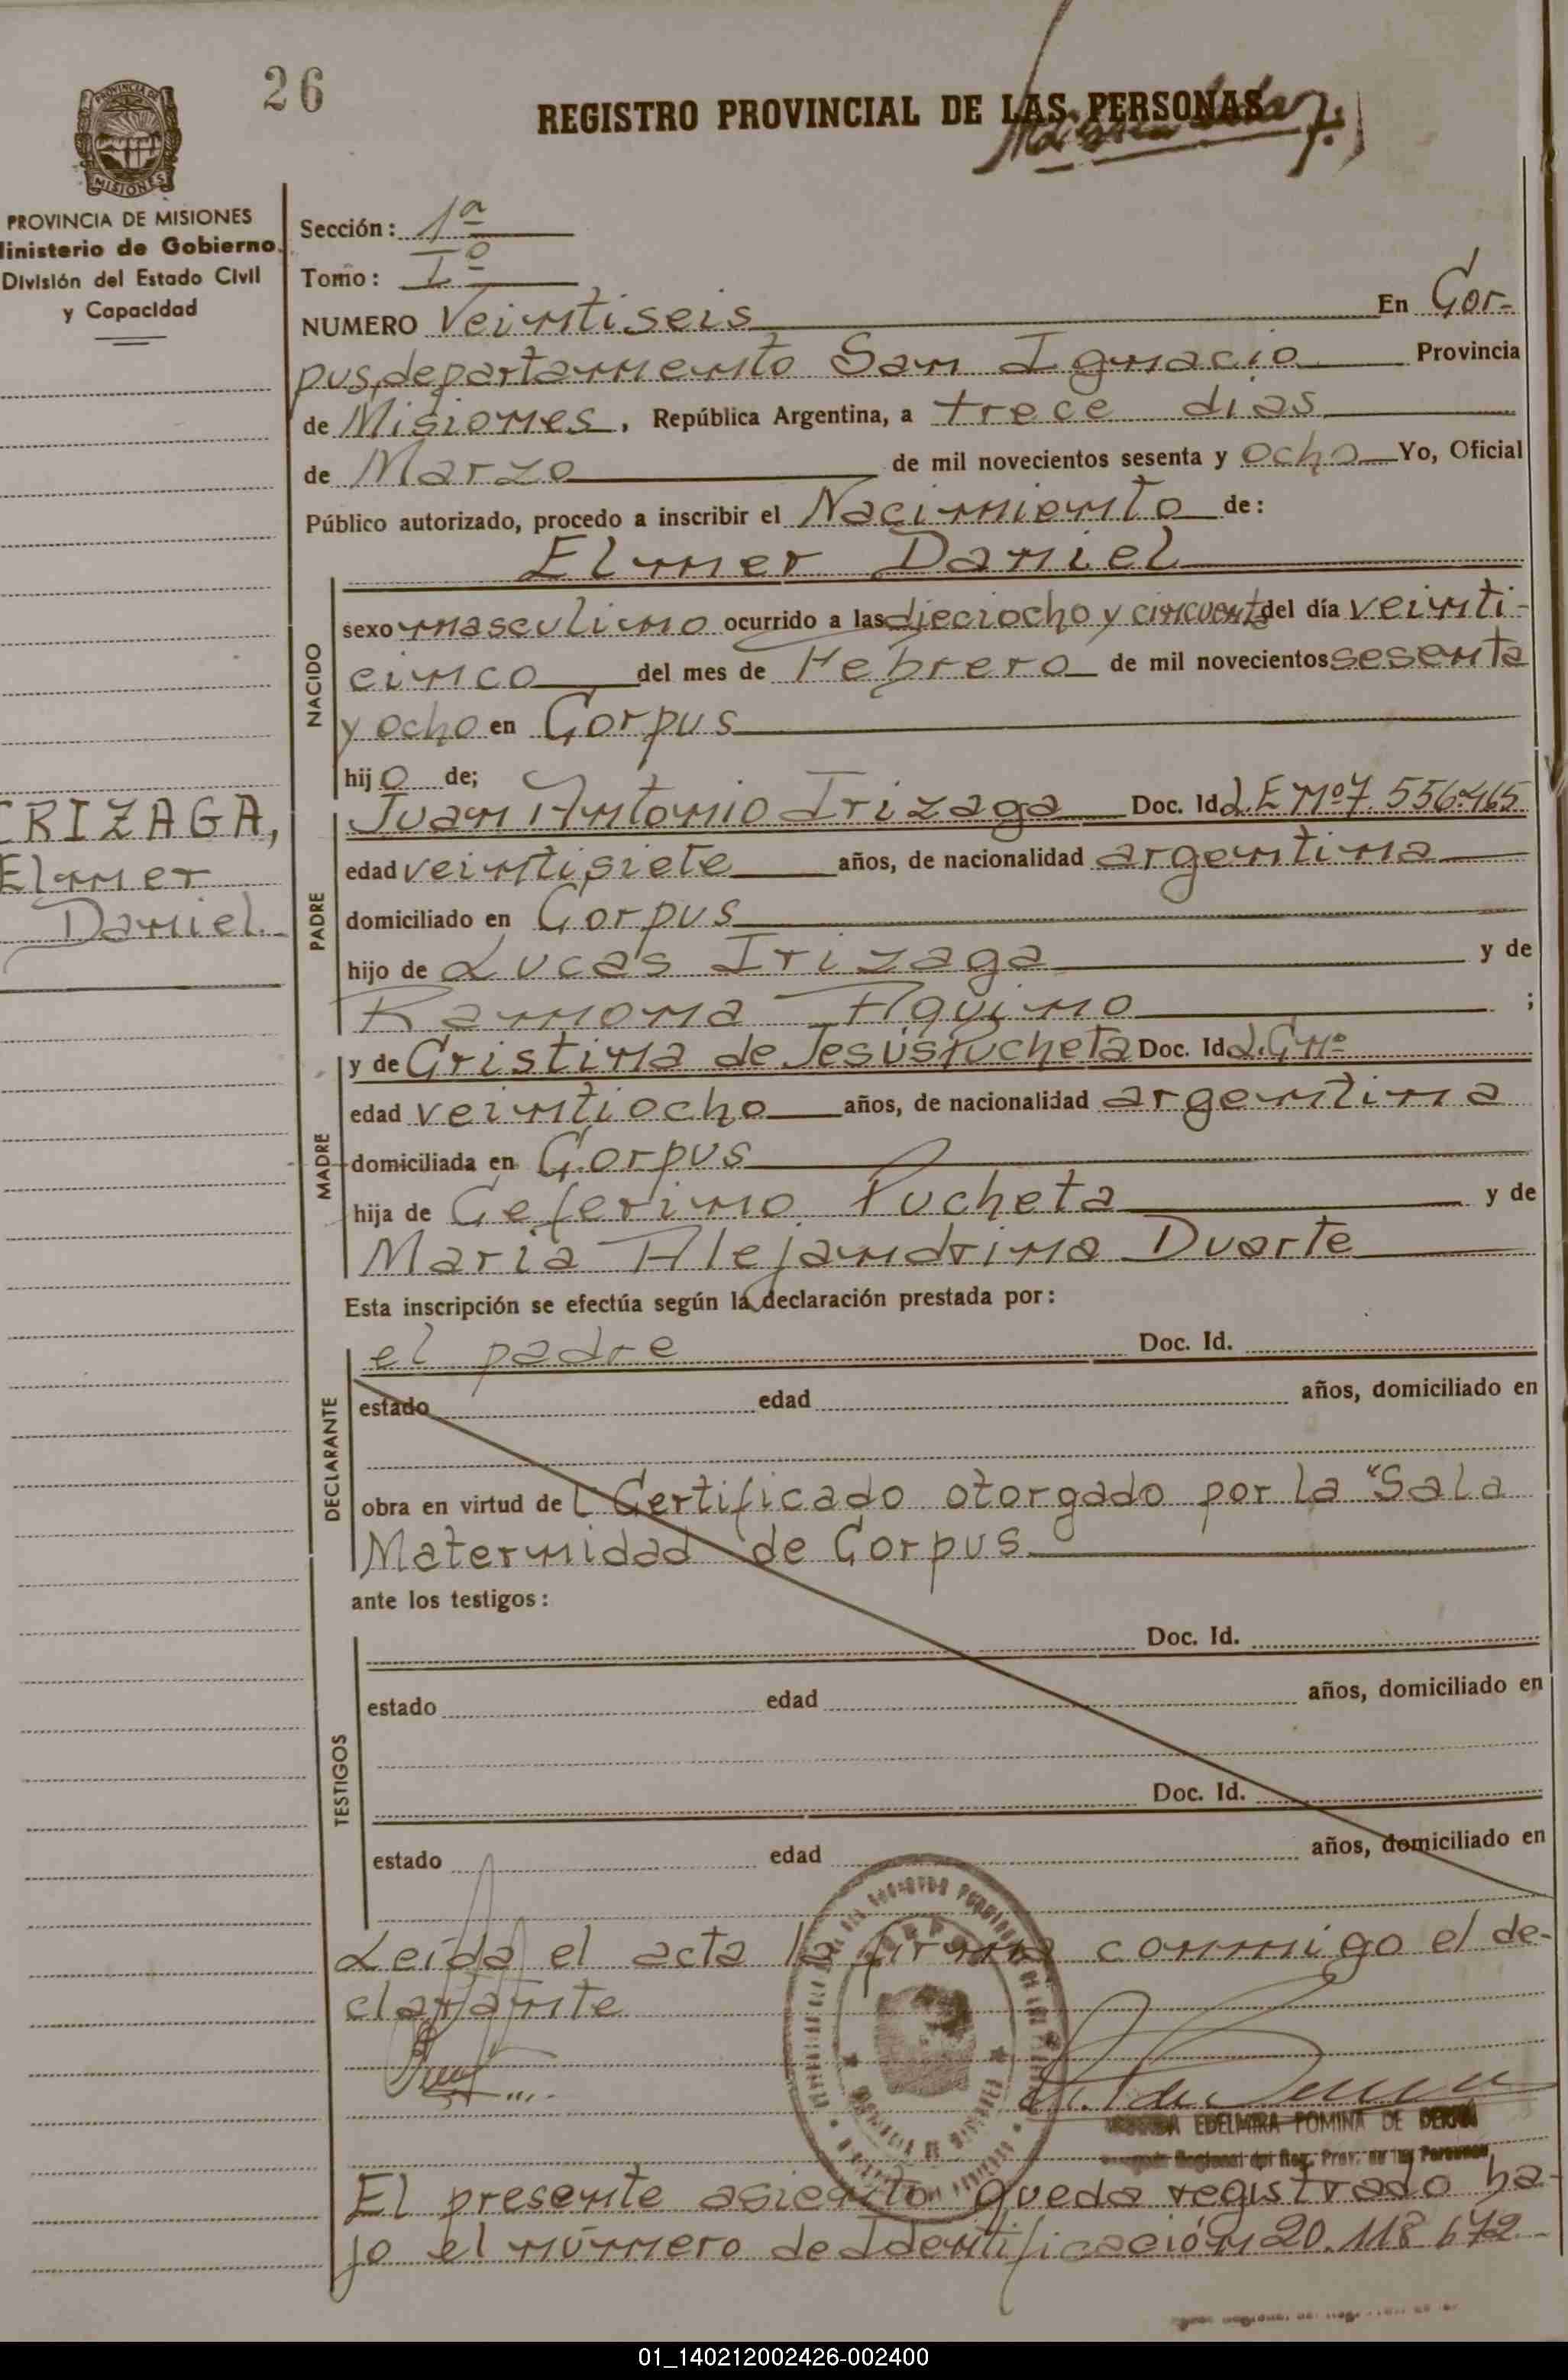 26
REGISTRO PROVINCIAL DE LAS PERSONAS
PROVINCIA DE
MISIONES
PROVINCIA DE MISIONES
Ministerio de Gobierno
División del Estado Civil
y Capacidad
Sección: 1ª
Tomo: Iº
NUMERO Veintiseis En Cor-
pus, departamento San Ignacio Provincia
de Misiones, República Argentina, a trece dias
de Marzo de mil novecientos sesenta y ocho Yo, Oficial
Público autorizado, procedo a inscribir el Nacimiento de:
Elmer Daniel
NACIDO
sexo masculino ocurrido a las dieciocho y cincuenta del día veinti-
cinco del mes de Febrero de mil novecientos sesenta
y ocho en Corpus
hijo de;
IRIZAGA,
Elmer
Daniel.
PADRE
Juan Antonio Irizaga Doc. Id. L E Nº 7.556.465
edad veintisiete años, de nacionalidad argentina
domiciliado en Corpus
hijo de Lucas Irizaga y de
Ramona Aquino ;
MADRE
y de Cristina de Jesús Pucheta Doc. Id. L.C Nº
edad veintiocho años, de nacionalidad argentina
domiciliada en Corpus
hija de Ceferino Pucheta y de
Maria Alejandrina Duarte
Esta inscripción se efectúa según la declaración prestada por:
DECLARANTE
el padre Doc. Id.
estado edad años, domiciliado en
obra en virtud del Certificado otorgado por la "Sala
Maternidad de Corpus
ante los testigos:
TESTIGOS
Doc. Id.
estado edad años, domiciliado en
Doc. Id.
estado edad años, domiciliado en
Leída el acta la firma conmigo el de-
clarante
EDELMIRA FOMINA DE
Regional del Reg. Prov. de las Personas
El presente asiento queda registrado ba-
jo el número de Identificación 20.118.672
01_140212002426-002400